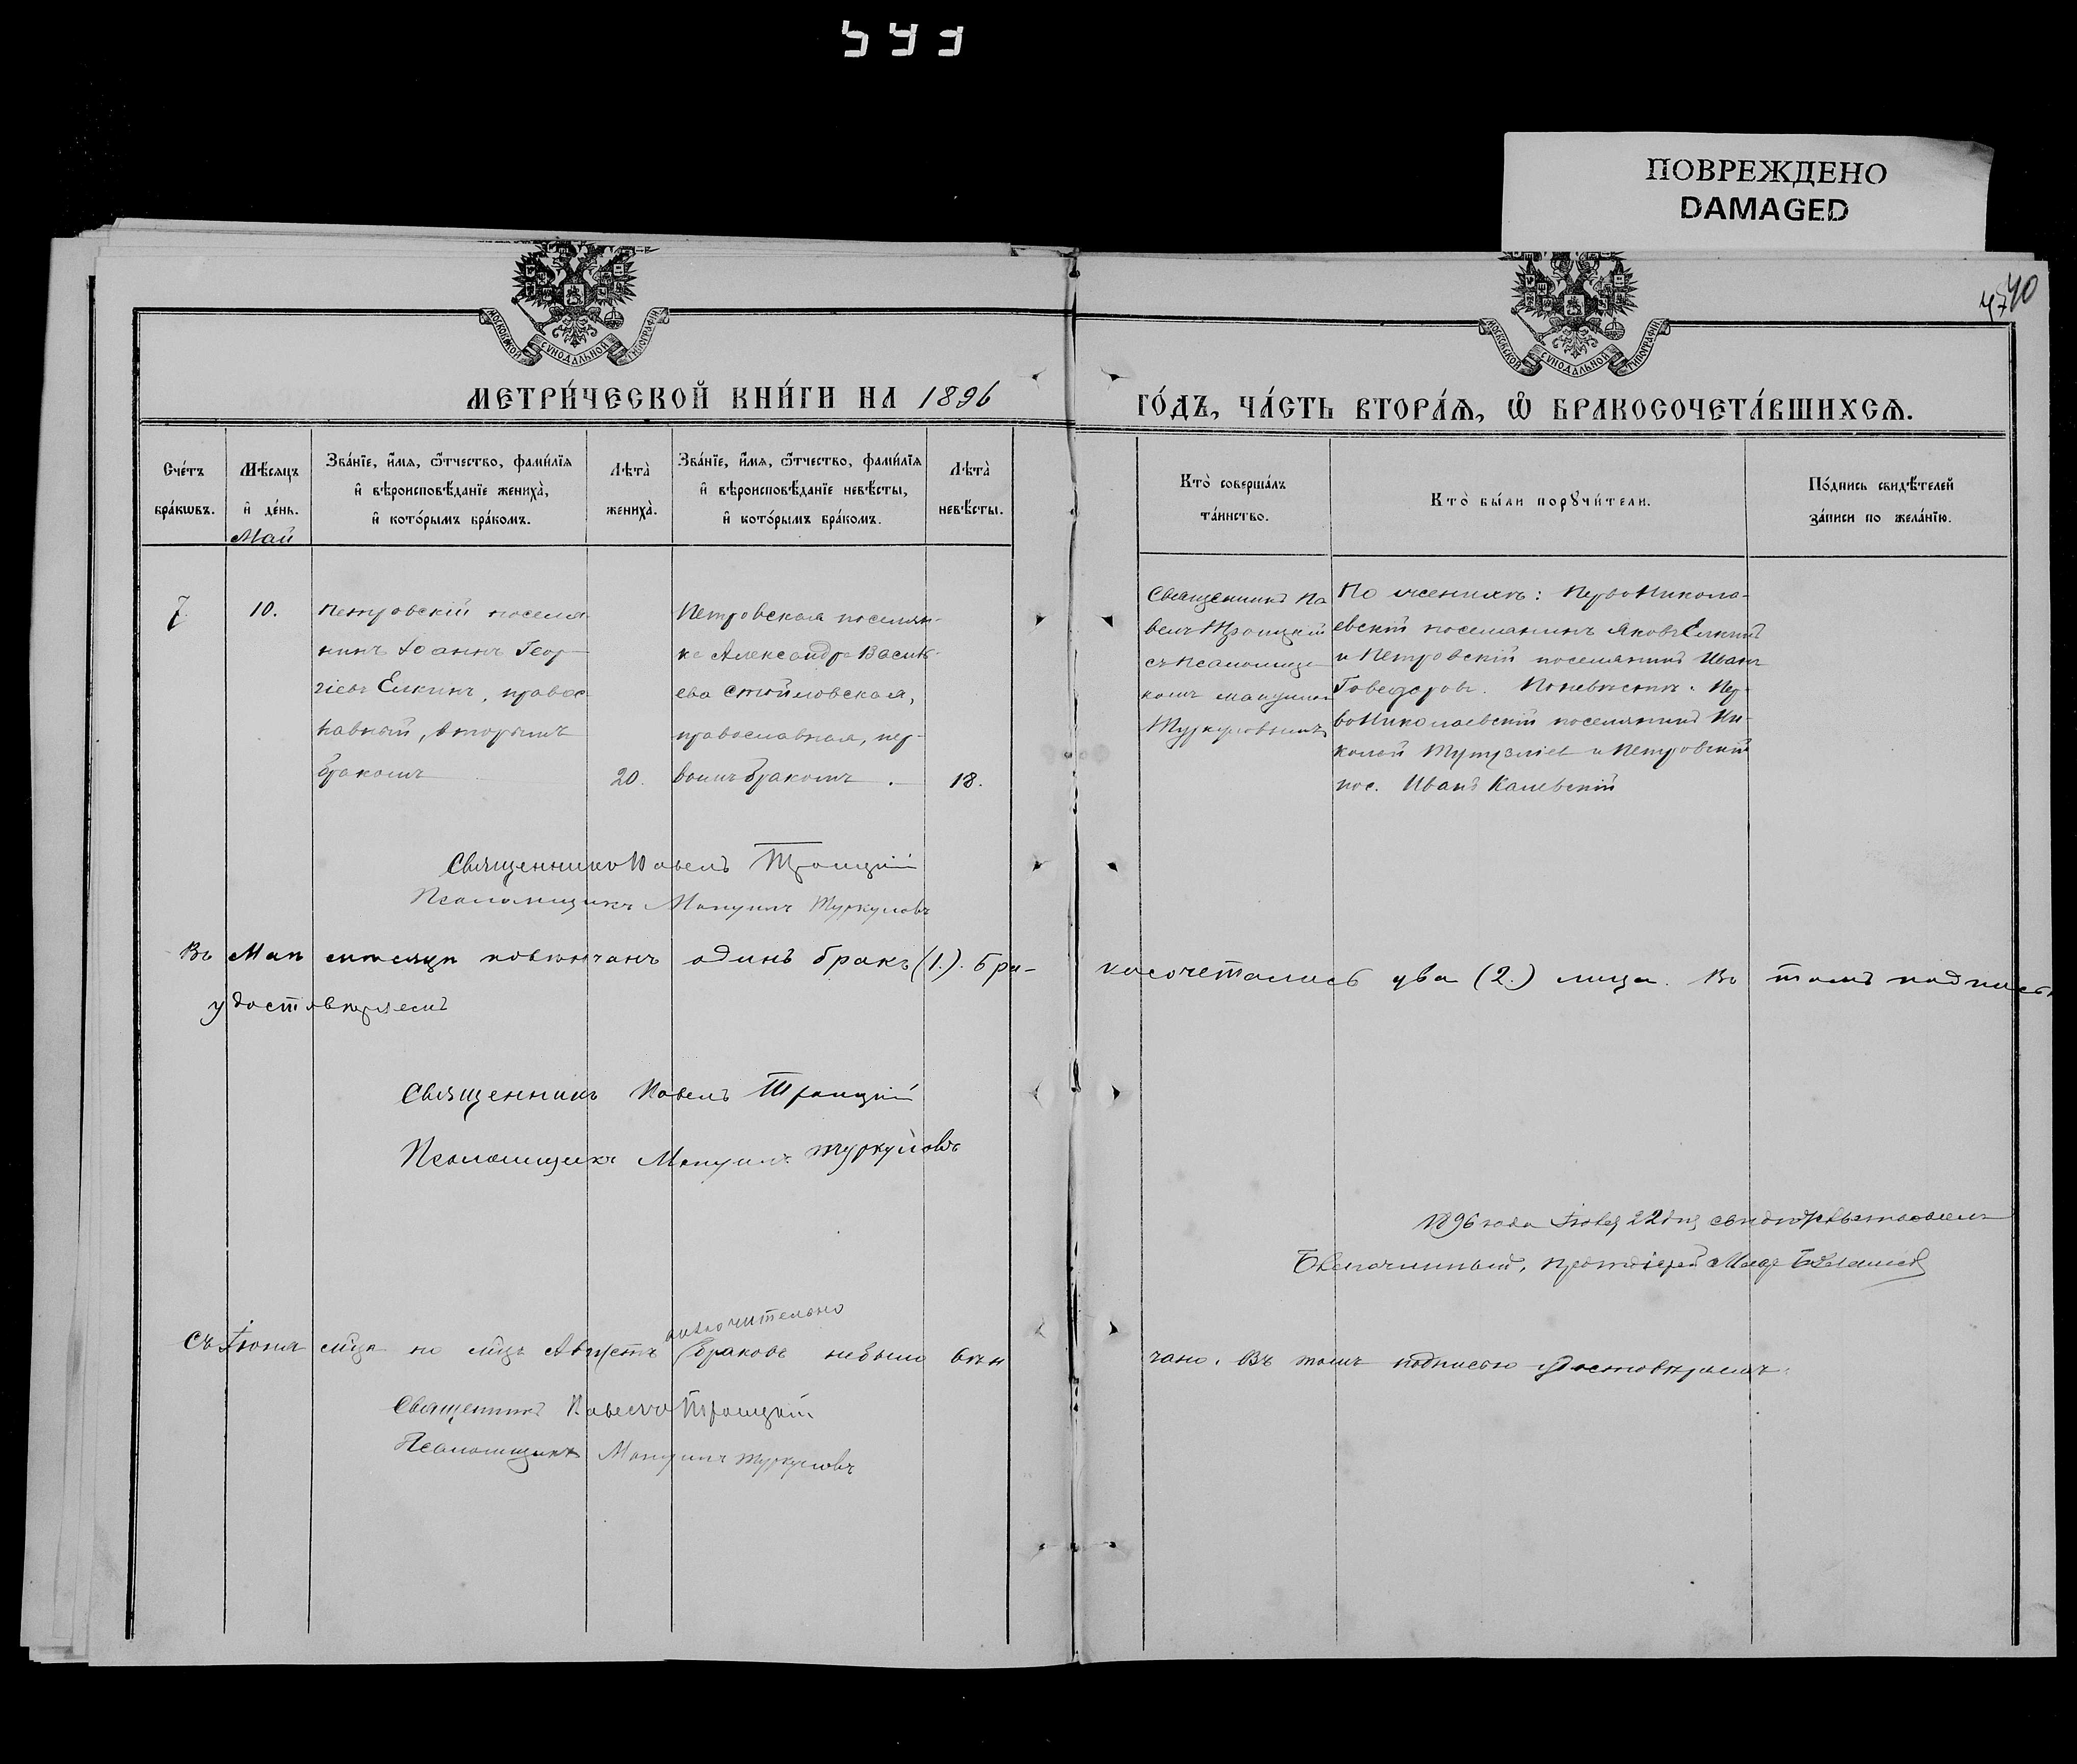 ПОВРЕЖДЕНО
DAMAGED
40
47
МОСКОВСКОЙ СѴНОДАЛЬНОЙ ТИПОГРАФІИ
МОСКОВСКОЙ СѴНОДАЛЬНОЙ ТИПОГРАФІИ
МЕТРИ́ЧЕСКОЙ КНИ́ГИ НА 1896
ГО́ДЪ, ЧА́СТЬ ВТОРА́Ѧ, Ѡ҆ БРАКОСОЧЕТА́ВШИХСѦ.
Сче́тъ
бра́кѡвъ.
Мѣ́сяцъ
и҆ де́нь.
Май
Зва́нїе, и҆́мѧ, ѻ҆́тчество, фами́лїѧ
и҆ вѣроисповѣ́данїе жениха̀,
и҆ кото́рымъ бра́комъ.
Лѣта̀
жениха̀.
Зва́нїе, и҆́мѧ, ѻ҆́тчество, фами́лїѧ
и҆ вѣроисповѣ́данїе невѣ́сты,
и҆ кото́рымъ бра́комъ.
Лѣта̀
невѣ́сты.
Кто̀ соверша́лъ
та́инство.
Кто̀ бы́ли порꙋчи́тели.
По́дпись свидѣ́телей
за́писи по жела́нїю.
7.
10.
Петровскій поселя
нинъ Іоаннъ Геор-
гіевъ Елкинъ, правос
лавный, вторымъ
бракомъ
20.
Петровская поселян-
ка Александра Василь-
ева Стойловская,
православная, пер-
вымъ бракомъ.
18.
Священникъ Па
велъ Троицкій
съ псаломщи-
комъ Мануилом
Туркуловымъ
По женихѣ: Первониколa-
евскій поселянинъ Яковъ Елкинъ
и Петровскій поселянинъ Иванъ
Говедаровъ. По невѣстѣ: Пер-
вониколаевскій поселянинъ Ни-
колай и Петровскій
пос. Иванъ Калевскій
Священникъ Павелъ Троицкій
Псаломщикъ Мануилъ Туркуловъ
Въ Маѣ мѣсяцѣ повѣнчанъ одинъ бракъ (1.). Бра-
косочетались два (2.) лица. Въ томъ подписью
удостовѣряемъ
Священникъ Павелъ Троицкій
Псаломщикъ Мануилъ Туркуловъ
1896 года 22 дня свидѣтельствовалъ
Благочинный, протоіерей
включительно
Съ Іюня мца по мцъ Августъ браковъ небыло вѣн
чано. Въ томъ подписью удостовѣряемъ.
Священникъ Павелъ Троицкій
Псаломщикъ Мануилъ Туркуловъ